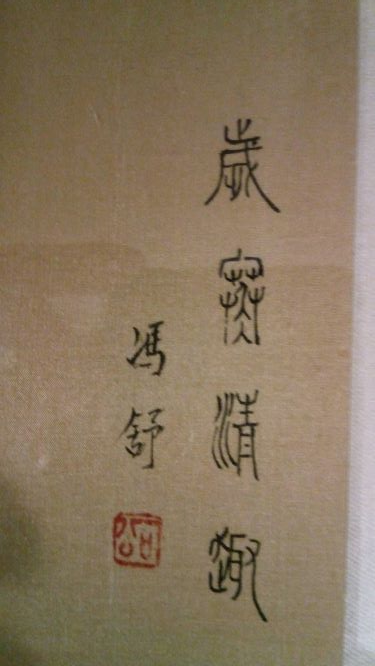 歲寒清趣
馮舒